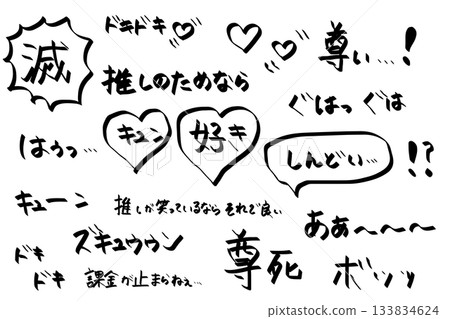 滅
ドキドキ
尊い…!
推しのためなら
ぐはっ ぐは
はうっ…
キュン
好き
しんどい…
!?
キューン
推しが笑っているなら それで良い
ああ～～～
ズキュウウン
ドキ
ドキ
課金が止まらねぇ…
尊死
ボッッ
PIXTA
pixta.jp - 133834624